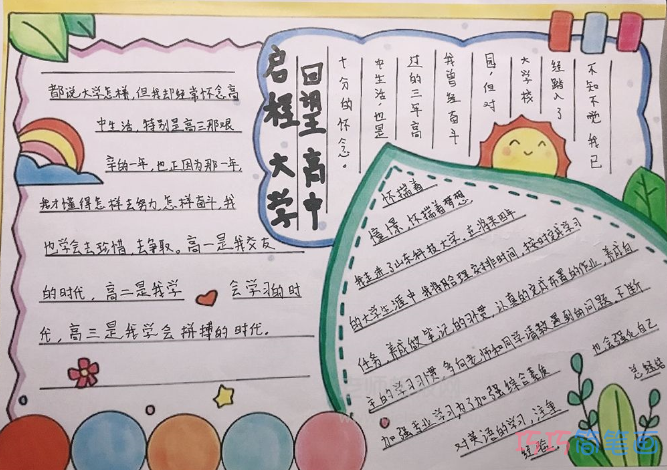 回望高中
启程大学
不知不觉我已
经踏入了
大学校
园,但对
我曾经奋斗
过的三年高
中生活,也是
十分的怀念。
都说大学怎样,但我却经常怀念高
中生活,特别是高三那艰
辛的一年,也正因为那一年,
我才懂得怎样去努力,怎样奋斗,我
也学会去珍惜,去争取。高一是我交友
的时代,高二是我学会学习的时
代,高三是我学会拼搏的时代。
怀揣着
憧憬,怀揣着梦想
我走进了山东科技大学。在将来四年
的大学生涯中我将合理安排时间,按时完成学习
任务,养成做笔记的习惯,认真的完成布置的作业,养成自
主的学习习惯,多向老师和同学请教遇到的问题,不断
加强专业学习,为了加强综合素质
也会强化自己
对英语的学习,注重
总结
经验。
巧巧简笔画